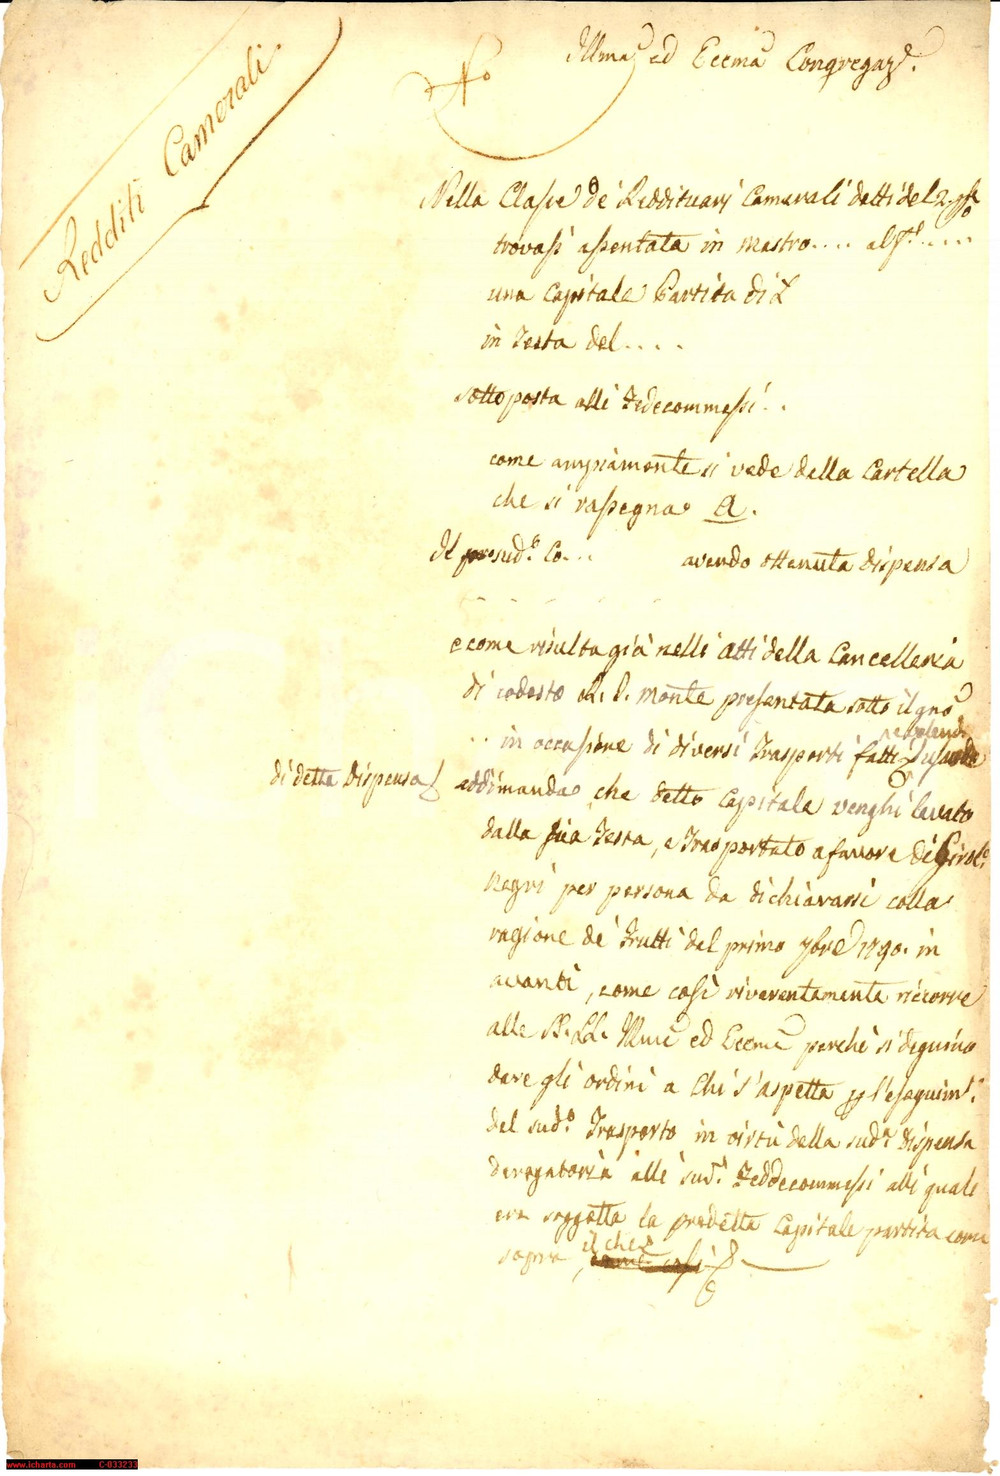 Redditi Camerali
Illma ed Eccma Congregaz.e
Nella Classe de Reddituarj Camerali detti del 2.
trovasi assentata in mastro.... al f.°....
una Capitale Partita di £
in Testa del....
sottoposta alli Fedecommessi..
come ampiamente si vede dalla Cartella
che si rassegna A.
Il sud.° Co... avendo ottenuta dispensa
e come risulta già nelli Atti della Cancelleria
di codesto R. I. Monte presentata sotto il gno
.. in occasione di diversi Trasporti fatti,
di detta Dispensa addimanda che detto Capitale venghi levato
dalla sua Testa, e Trasportato a favore di
Negri per persona da dichiararsi colla
ragione de frutti dal primo 7bre 1790. in
avanti, come così riverentemente ricorre
alle SS. LL. Illme ed Eccme perchè si degnino
dare gli ordini a Chi s'aspetta per l'eseguim.°
del sud.° Trasporto in virtù della sud.a Dispensa
derogatoria alli sud.i Feddecommessi alli quali
era soggetta la predetta Capitale partita come
sopra, il che
www.icharta.com C-033233